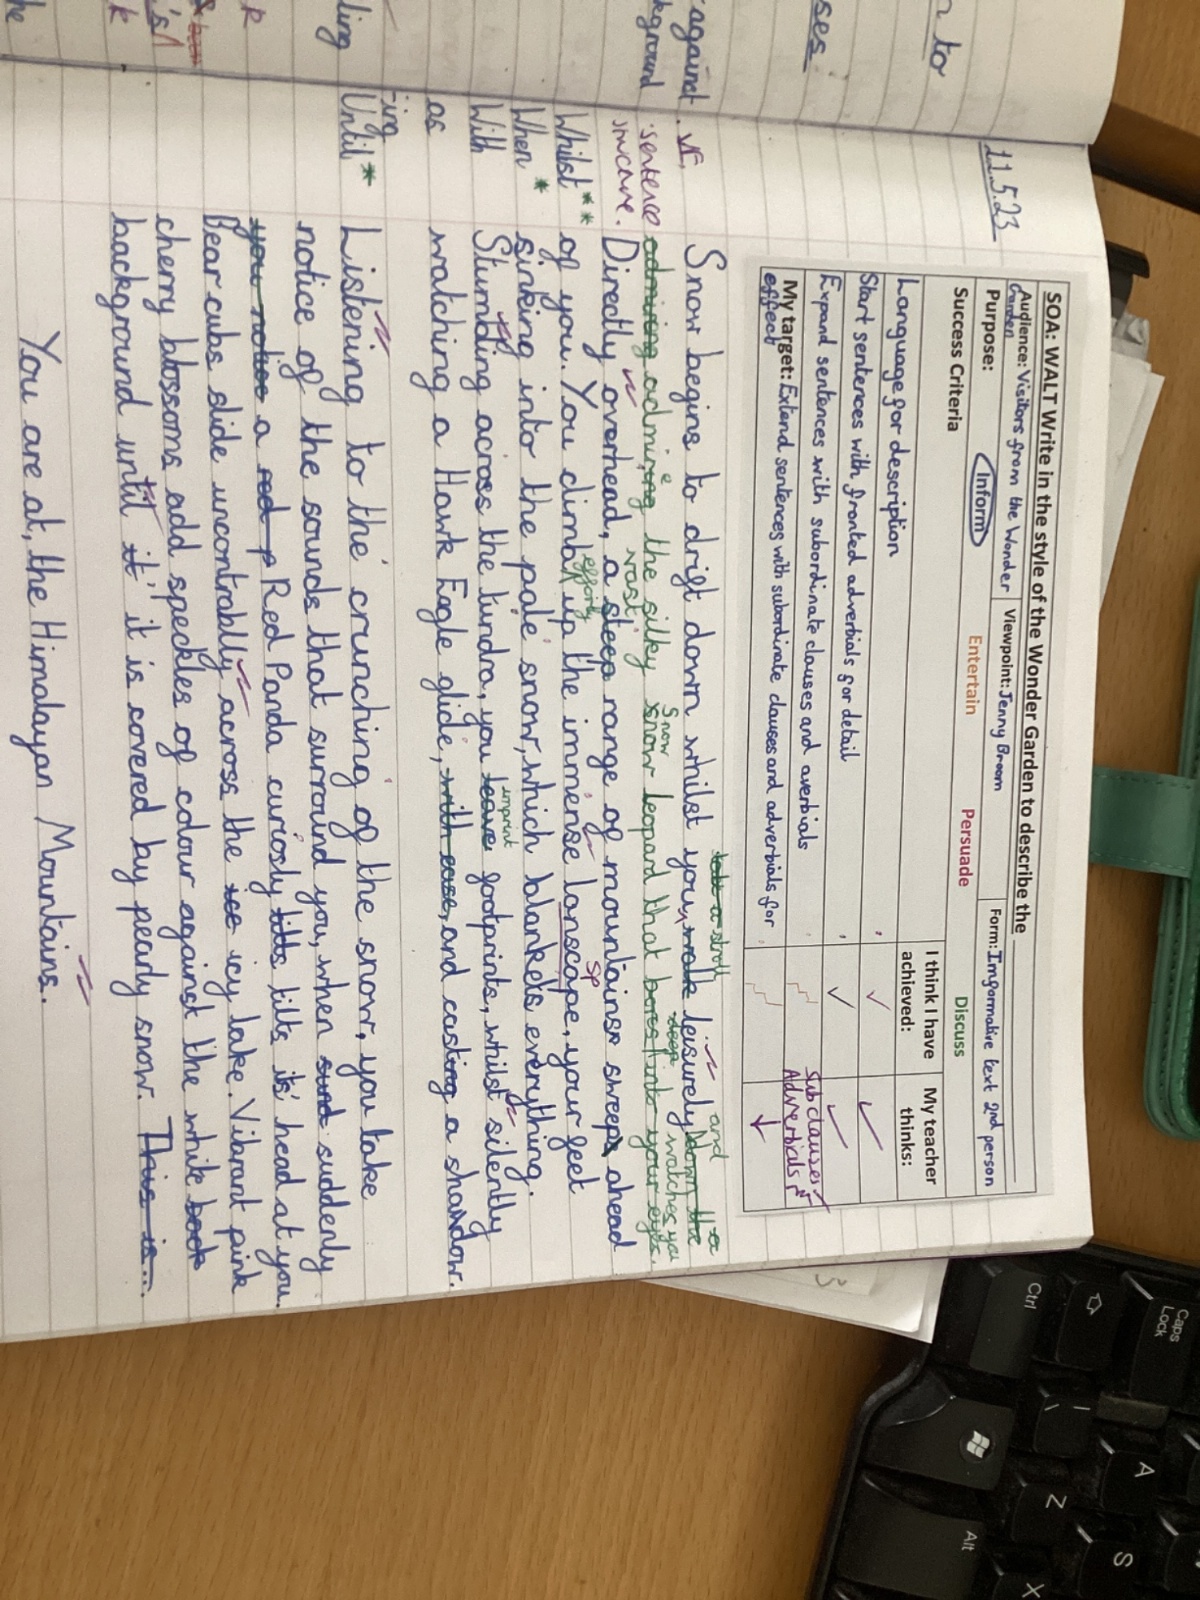 11.5.23
SOA: WALT Write in the style of the Wonder Garden to describe the
Audience: Visitors from the Wonder Garden
Viewpoint: Jenny Broom
Form: Informative text 2nd person
Purpose: Inform Entertain Persuade Discuss
Success Criteria
I think I have achieved:
My teacher thinks:
Language for description
Start sentences with fronted adverbials for detail
Expand sentences with subordinate clauses and averbials
Sub clauses
Adverbials
My target: Extend sentences with subordinate clauses and adverbials for effect
stroll
Snow begins to drift down whilst you walk leisurely down the and
sentence
structure.
admiring admire the silky snow Snow leopard that watches you
into your eyes.
Directly overhead, a steep vast range of mountains sweeps ahead
Whilst **
of you. You climb up effortly the immense lanscape, your feet
sp
When *
sinking into the pale snow, which blankets everything.
With
Stumding across the tundra, you leave imprint footprints, whilst silently
as
watching a Hawk Eagle glide, with ease, and casting a shawdow.
-ing
Until *
Listening to the crunching of the snow, you take
notice of the sounds that surround you, when sund suddenly
you notice a red p Red Panda curiosly tilts tilts it's head at you.
Bear cubs slide uncontrablly across the ice icy lake. Vibrant pink
cherry blossoms add speckles of colour against the white back
background until it it is covered by pearly snow. This is...
You are at, the Himalayan Mountains.
against
kground
ling
n to
ses
Caps Lock
A
S
Z
X
Ctrl
Alt